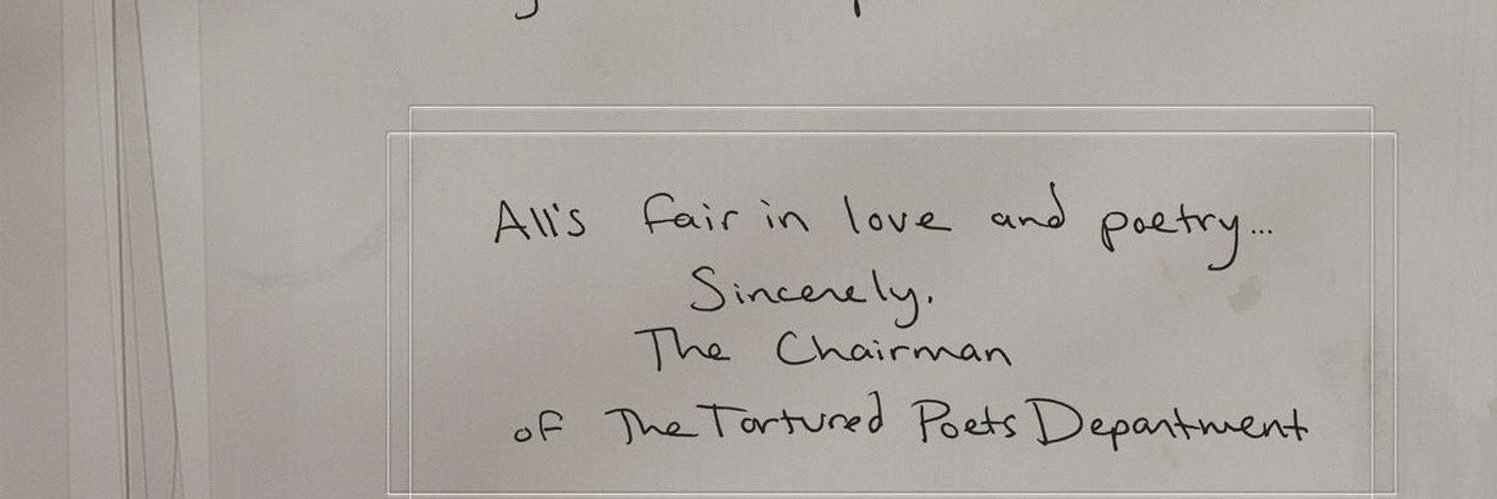 All's fair in love and poetry...
Sincerely,
The Chairman
of The Tortured Poets Department